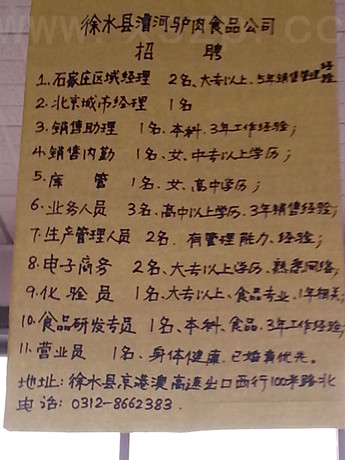 徐水县漕河驴肉食品公司
招 聘
1、石家庄区域经理 2名、大专以上、5年销售管理经验
2、北京城市经理 1名
3、销售助理 1名、本科、3年工作经验；
4、销售内勤 1名、女、中专以上学历；
5、库 管 1名、女、高中学历；
6、业务人员 3名、高中以上学历、3年销售经验；
7、生产管理人员 2名、有管理能力、经验；
8、电子商务 2名、大专以上学历、熟悉网络；
9、化验员 1名、大专以上、食品专业、1年相关；
10、食品研发专员 1名、本科、食品、3年工作经验；
11、营业员 1名、身体健康、已婚者优先。
地址：徐水县京港澳高速出口西行100米路北
电话：0312-8662383.